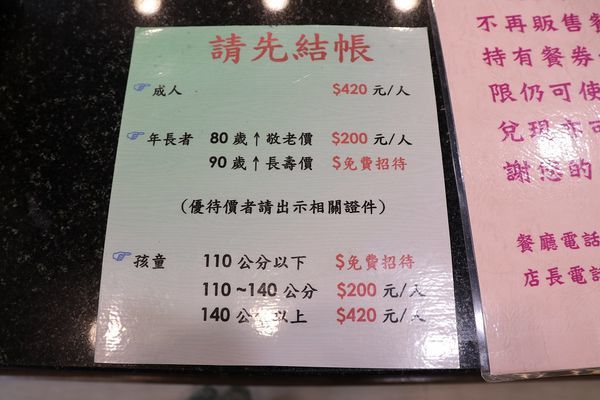 請先結帳
成人 $420 元/人
年長者 80 歲↑敬老價 $200 元/人
90 歲↑長壽價 $免費招待
(優待價者請出示相關證件)
孩童 110 公分以下 $免費招待
110 ~140 公分 $200 元/人
140 公分以上 $420 元/人
不再販售餐
持有餐券
限仍可使
兌現亦可
謝您的
餐廳電話
店長電話